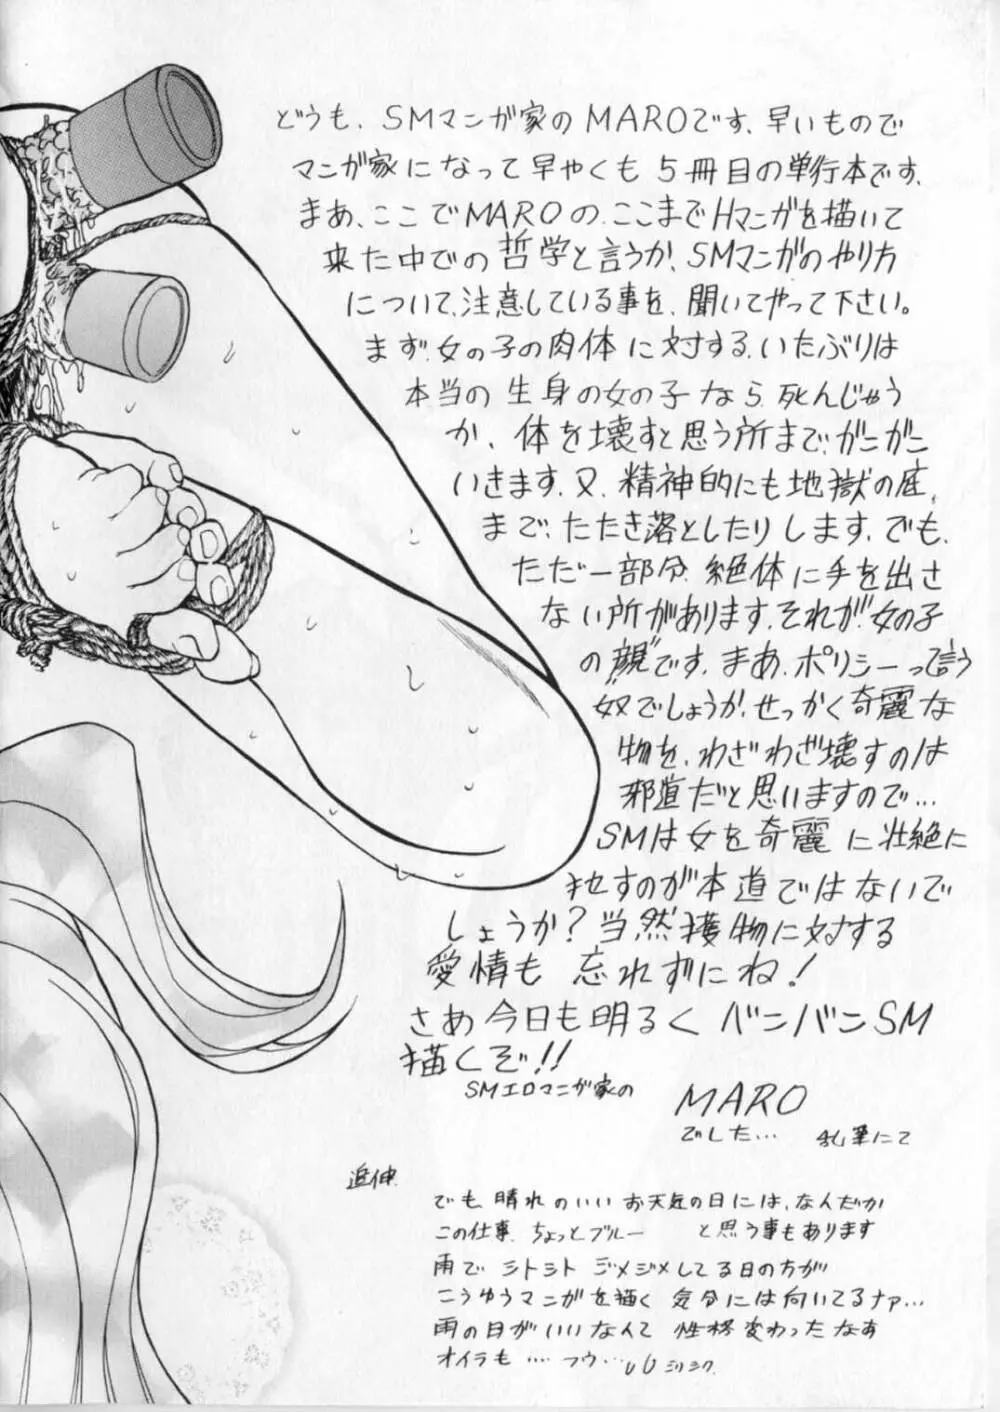 どうも、SMマンガ家のMAROです、早いもので
マンガ家になって早やくも5冊目の単行本です、
まあ、ここでMAROの、ここまでHマンガを描いて
来た中での哲学と言うか、SMマンガのやり方
について、注意している事を、聞いてやって下さい。
まず、女の子の肉体に対する、いたぶりは
本当の生身の女の子なら、死んじゃう
か、体を壊すと思う所まで、ガンガン
いきます、又、精神的にも地獄の底、
まで、たたき落としたりします、でも、
ただ一部分、絶体に手を出さ
ない所があります、それが、女の子
の"顔"です、まあ、ポリシーって言う
奴でしょうか、せっかく奇麗な
物を、わざわざ壊すのは
邪道だと思いますので…
SMは女を奇麗に壮絶に
すのが本道ではないで
しょうか?当然獲物に対する
愛情も忘れずにね!
さあ今日も明るくバンバンSM
描くぞ!!
SMエロマンガ家の
MARO
でした… 乱筆にて
追伸、
でも、晴れのいいお天気の日には、なんだか
この仕事、ちょっとブルー と思う事もあります
雨でシトシトジメジメしてる日の方が
こうゆうマンガを描く気分には向いてるナァ…
雨の日がいいなんて性格変わったなあ
オイラも…フゥ…シリシク